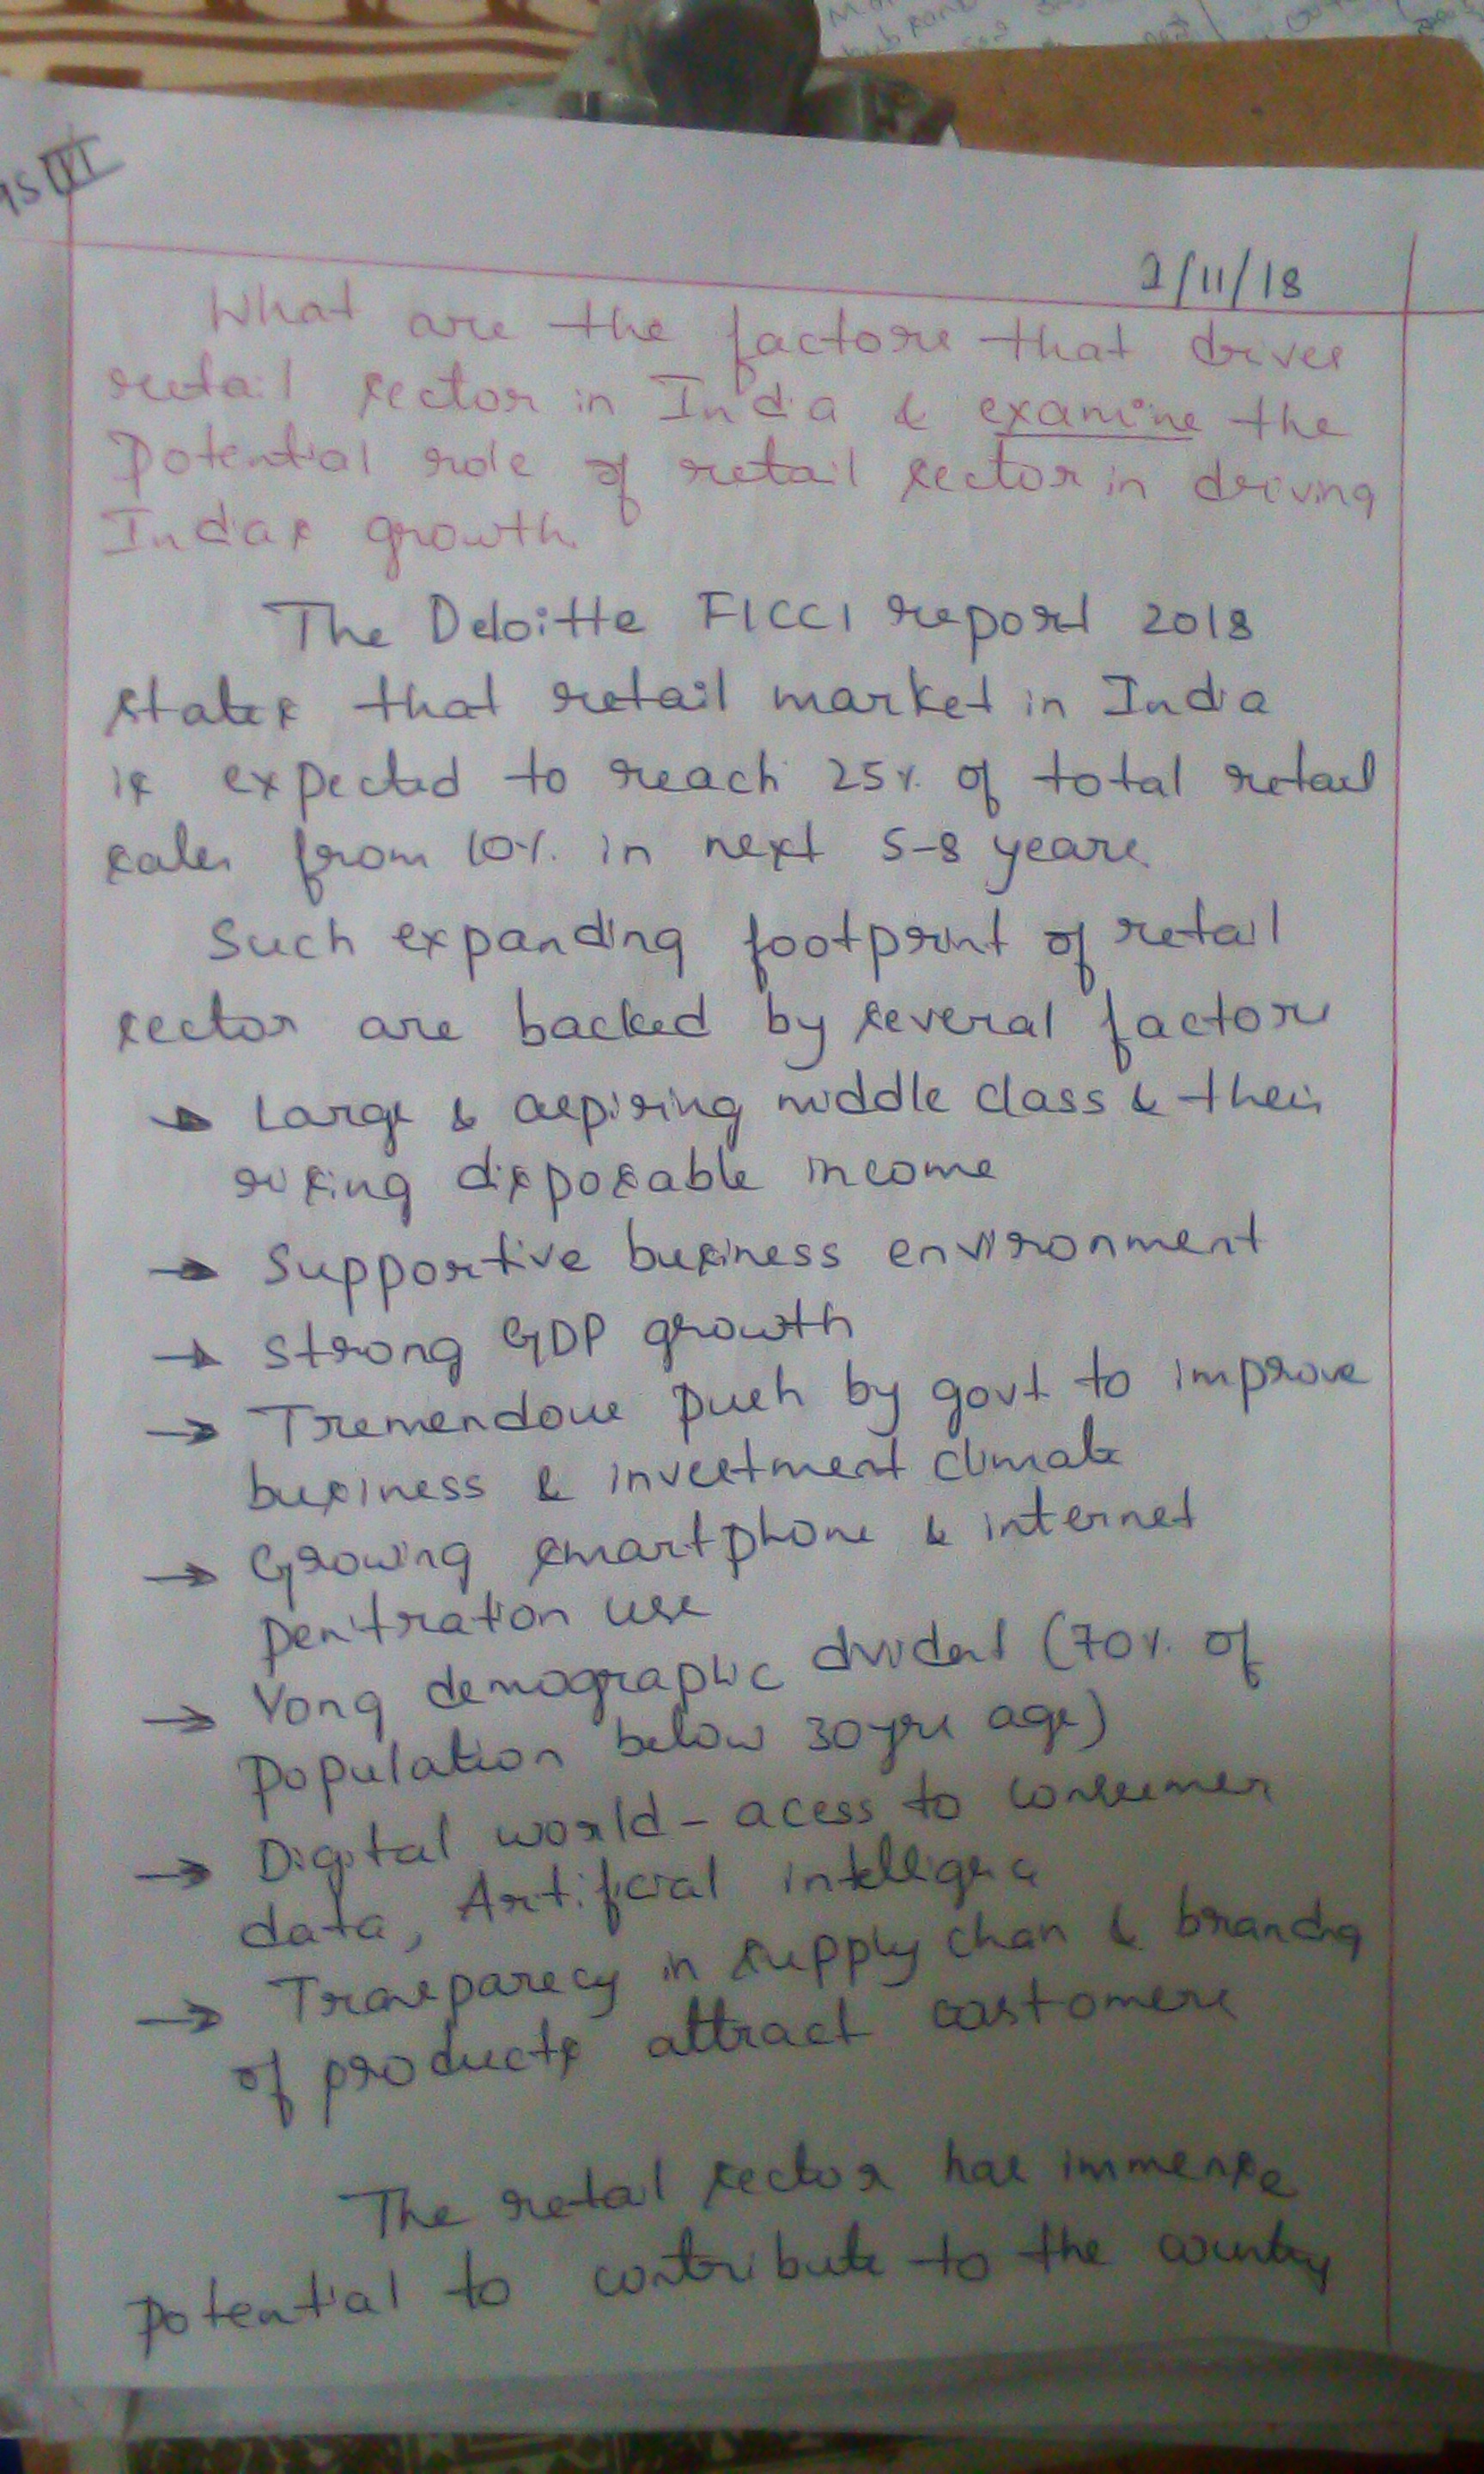 GS III
2/11/18
What are the factors that drives
retail sector in India & examine the
Potential role of retail sector in driving
Indias growth.
The Deloitte FICCI report 2018
states that retail market in India
is expected to reach 25% of total retail
sales from 10% in next 5-8 years
Such expanding footprint of retail
sector are backed by several factors
→ Large & aspiring middle class & their
rising disposable income
→ Supportive business environment
→ Strong GDP growth
→ Tremendous push by govt to improve
business & investment climate
→ Growing smartphone & internet
penitration use
→ Yong demographic divident (70% of
population below 30 yrs age)
→ Digital world - acess to consumer
data, Artificial intelligence
→ Transparecy in supply chan & branding
of products attract customers
The retail sector has immense
potential to contribute to the country